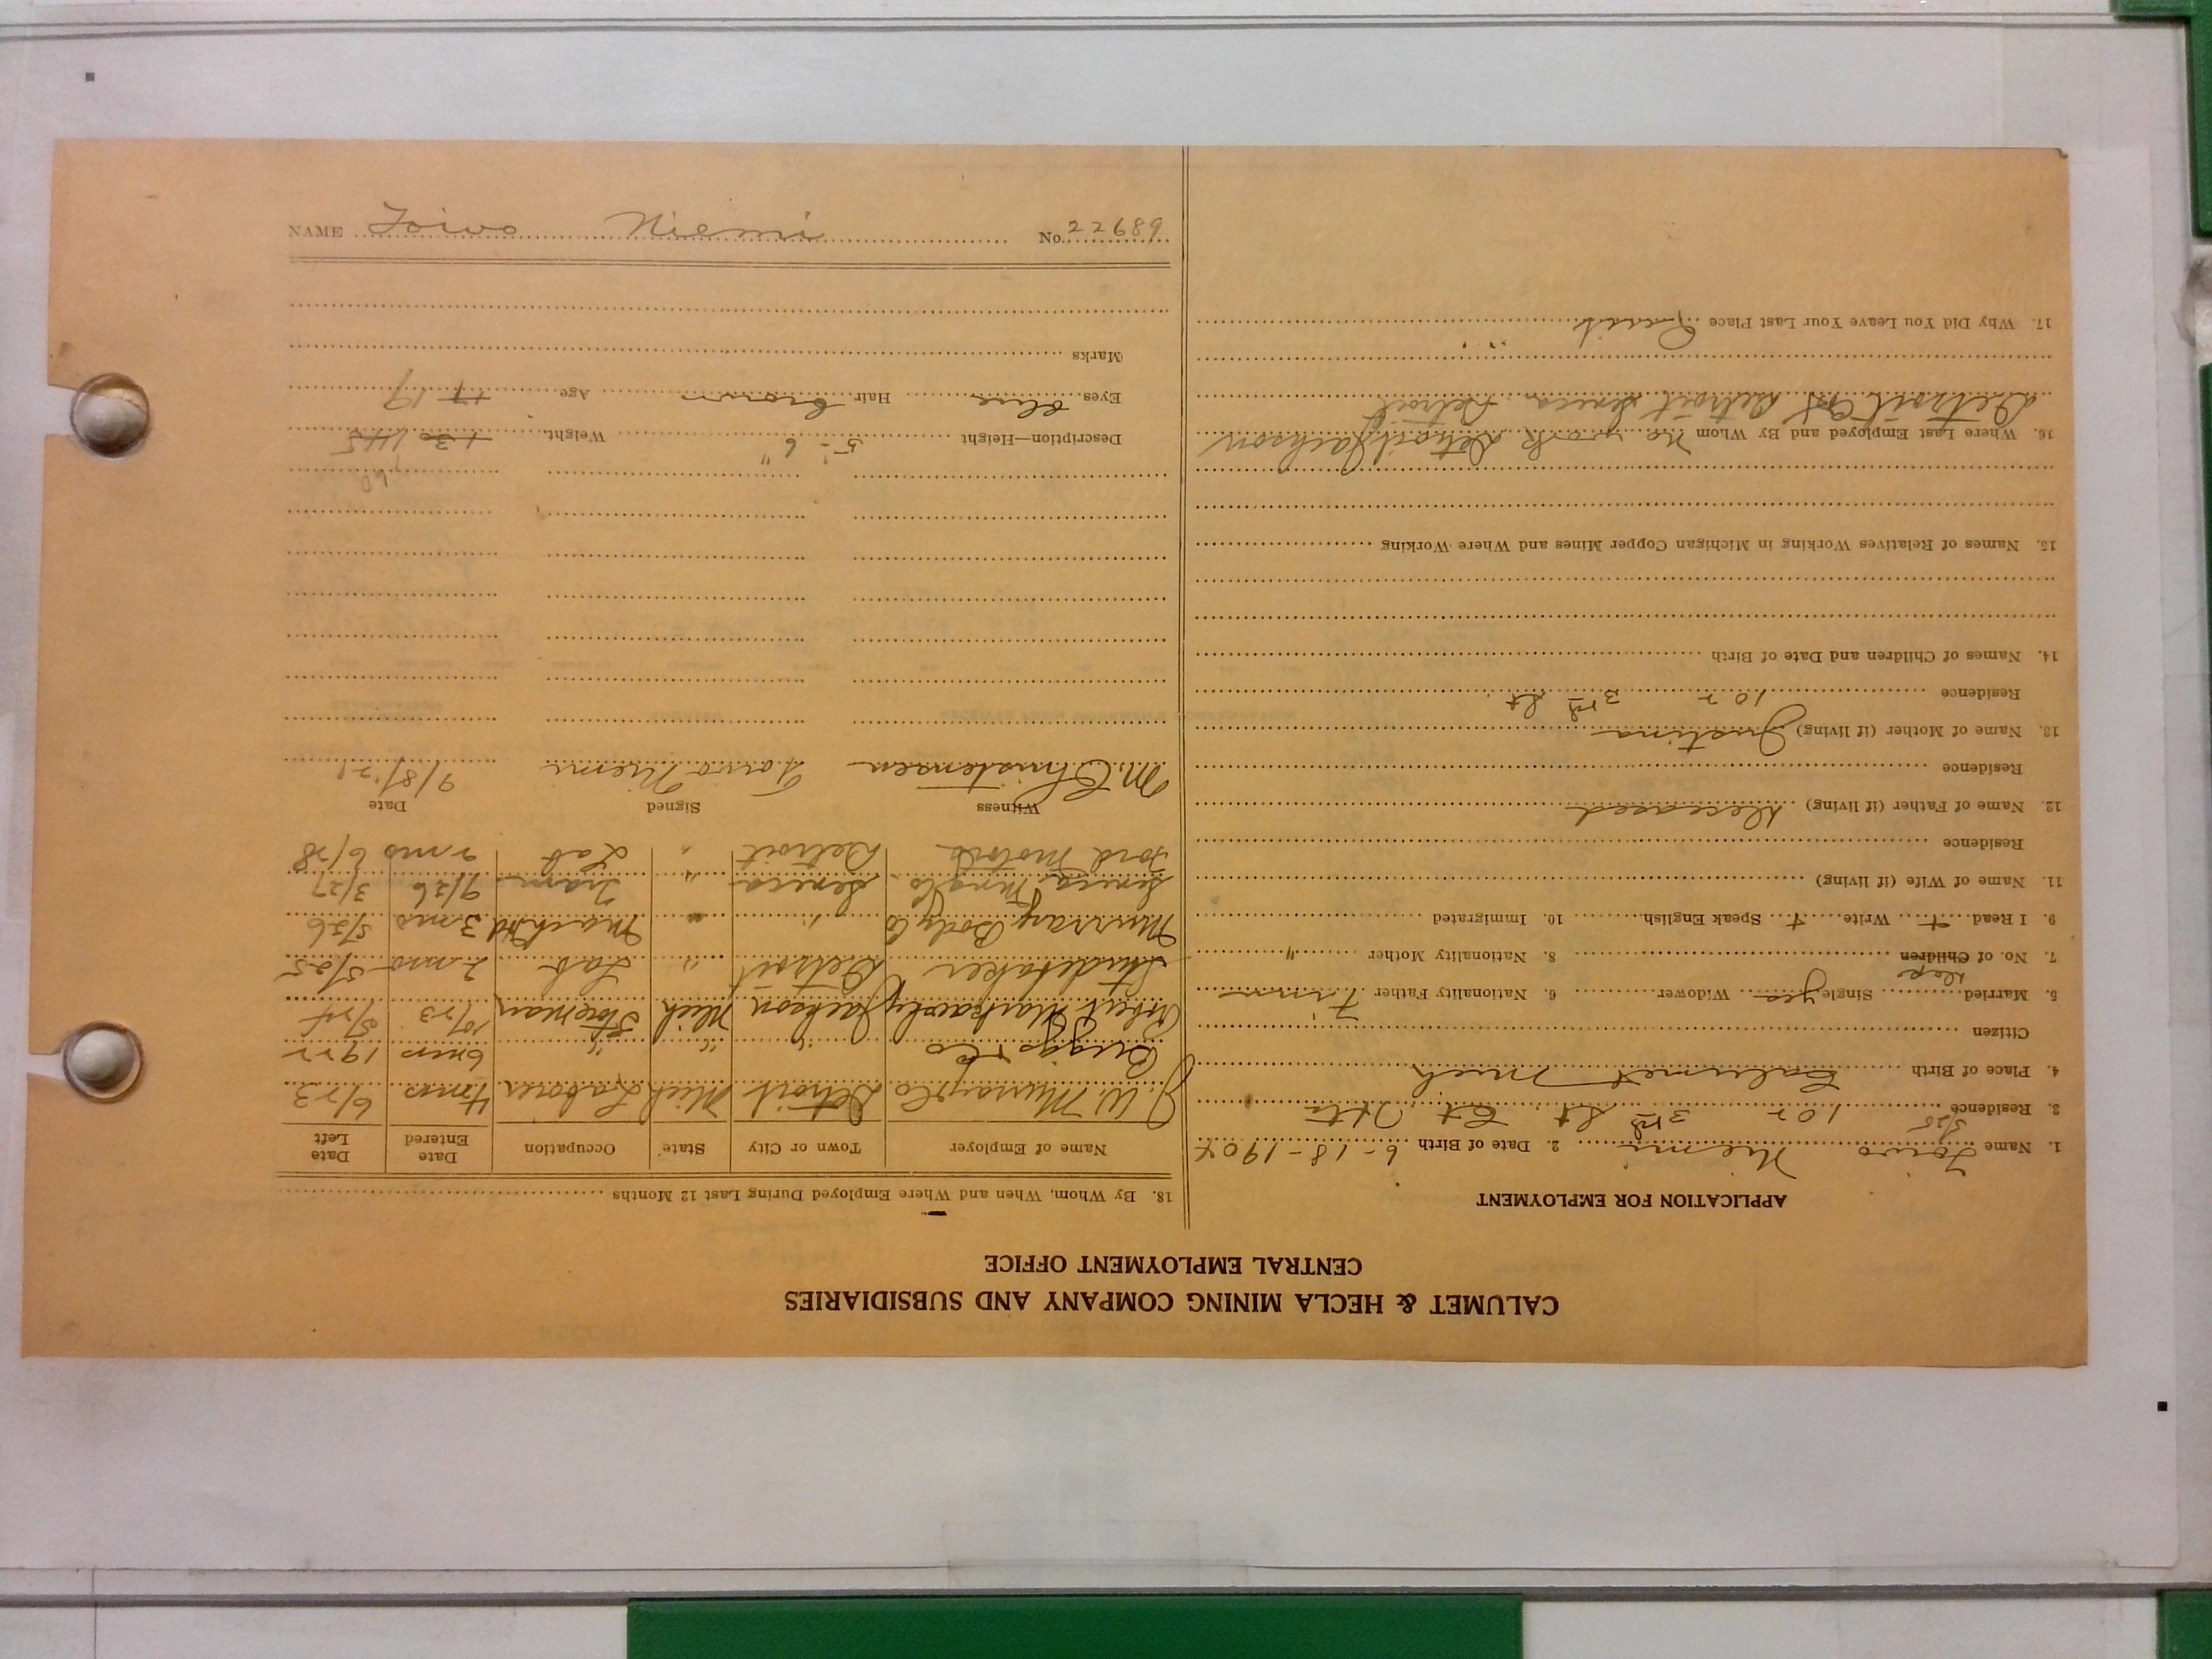 CALUMET & HECLA MINING COMPANY AND SUBSIDIARIES
CENTRAL EMPLOYMENT OFFICE
APPLICATION FOR EMPLOYMENT
1. Name Toivo Niemi 2. Date of Birth 6-18-1904
3. Residence 5/25 102 3rd St
4. Place of Birth Calumet Mich
Citizen
5. Married Single yes Widower 6. Nationality Father Finn
7. No. of Children Dep 8. Nationality Mother "
9. I Read + Write + Speak English 10. Immigrated
11. Name of Wife (if living)
Residence
12. Name of Father (if living) Deceased
Residence
13. Name of Mother (if living) Justina
Residence 102 3rd St
14. Names of Children and Date of Birth
15. Names of Relatives Working in Michigan Copper Mines and Where Working
16. Where Last Employed and By Whom No work Detroit Jackson
Detroit Detroit Seneca Detroit
17. Why Did You Leave Your Last Place Quit
18. By Whom, When and Where Employed During Last 12 Months
Name of Employer Town or City State Occupation Date Entered Date Left
J. W. Murray Co Detroit Mich Laborer 4 mos 6/23
Briggs & Co " " " 6 mos 1922
Jackson Mich Storeman 10/23 5/24
Studebaker Detroit " Lab 2 mos 5/25
Murray Body Co " " Mach Hd 3 mos 5/26
Seneca Mng Co. Seneca " Tram 9/26 3/27
Ford Motor Co Detroit " Lab 2 mos 6/28
Witness Signed Date
M. Christensen Toivo Niemi 9/8/21
160
Description—Height 5'- 6" Weight 130 145
Eyes blue Hair brown Age 17 19
Marks
NAME Toivo Niemi No. 22689